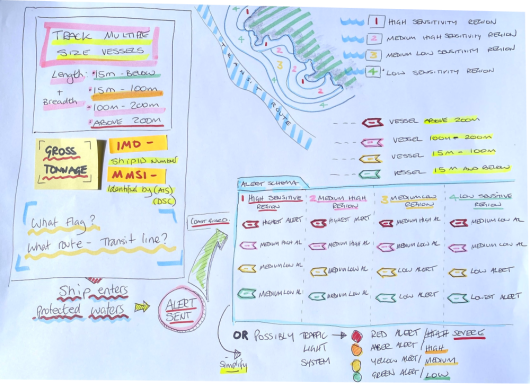 TRACK MULTIPLE
SIZE VESSELS
Length:
+
Breadth
*15m - BELOW
*15m - 100m
*100m - 200m
*ABOVE 200m
GROSS
TONNAGE
IMO -
Ship ID Number
MMSI -
Identified by (AIS)
(DSC)
What Flag?
What route - Transit line?
Ship enters
Protected waters
ALERT
SENT
ROUTE
1
2
3
4
1 HIGH SENSITIVITY REGION
2 MEDIUM HIGH SENSITIVITY REGION
3 MEDIUM LOW SENSITIVITY REGION
4 LOW SENSITIVITY REGION
VESSEL ABOVE 200m
VESSEL 100m - 200m
VESSEL 15m - 100m
VESSEL 15m AND BELOW
ALERT SCHEMA
1 HIGH SENSITIVE
REGION
2 MEDIUM HIGH
REGION
3 MEDIUM LOW
REGION
4 LOW SENSITIVE
REGION
HIGHEST ALERT
HIGHEST ALERT
MEDIUM HIGH AL
MEDIUM LOW AL
MEDIUM HIGH AL
MEDIUM HIGH AL
MEDIUM LOW AL
MEDIUM LOW AL
MEDIUM LOW AL
MEDIUM LOW AL
LOW ALERT
LOW ALERT
MEDIUM LOW AL
MEDIUM LOW AL
LOW ALERT
LOWEST ALERT
Simplify
OR POSSIBLY TRAFFIC
LIGHT
SYSTEM
RED ALERT / HIGH SEVERE
AMBER ALERT / HIGH
YELLOW ALERT / MEDIUM
GREEN ALERT / LOW